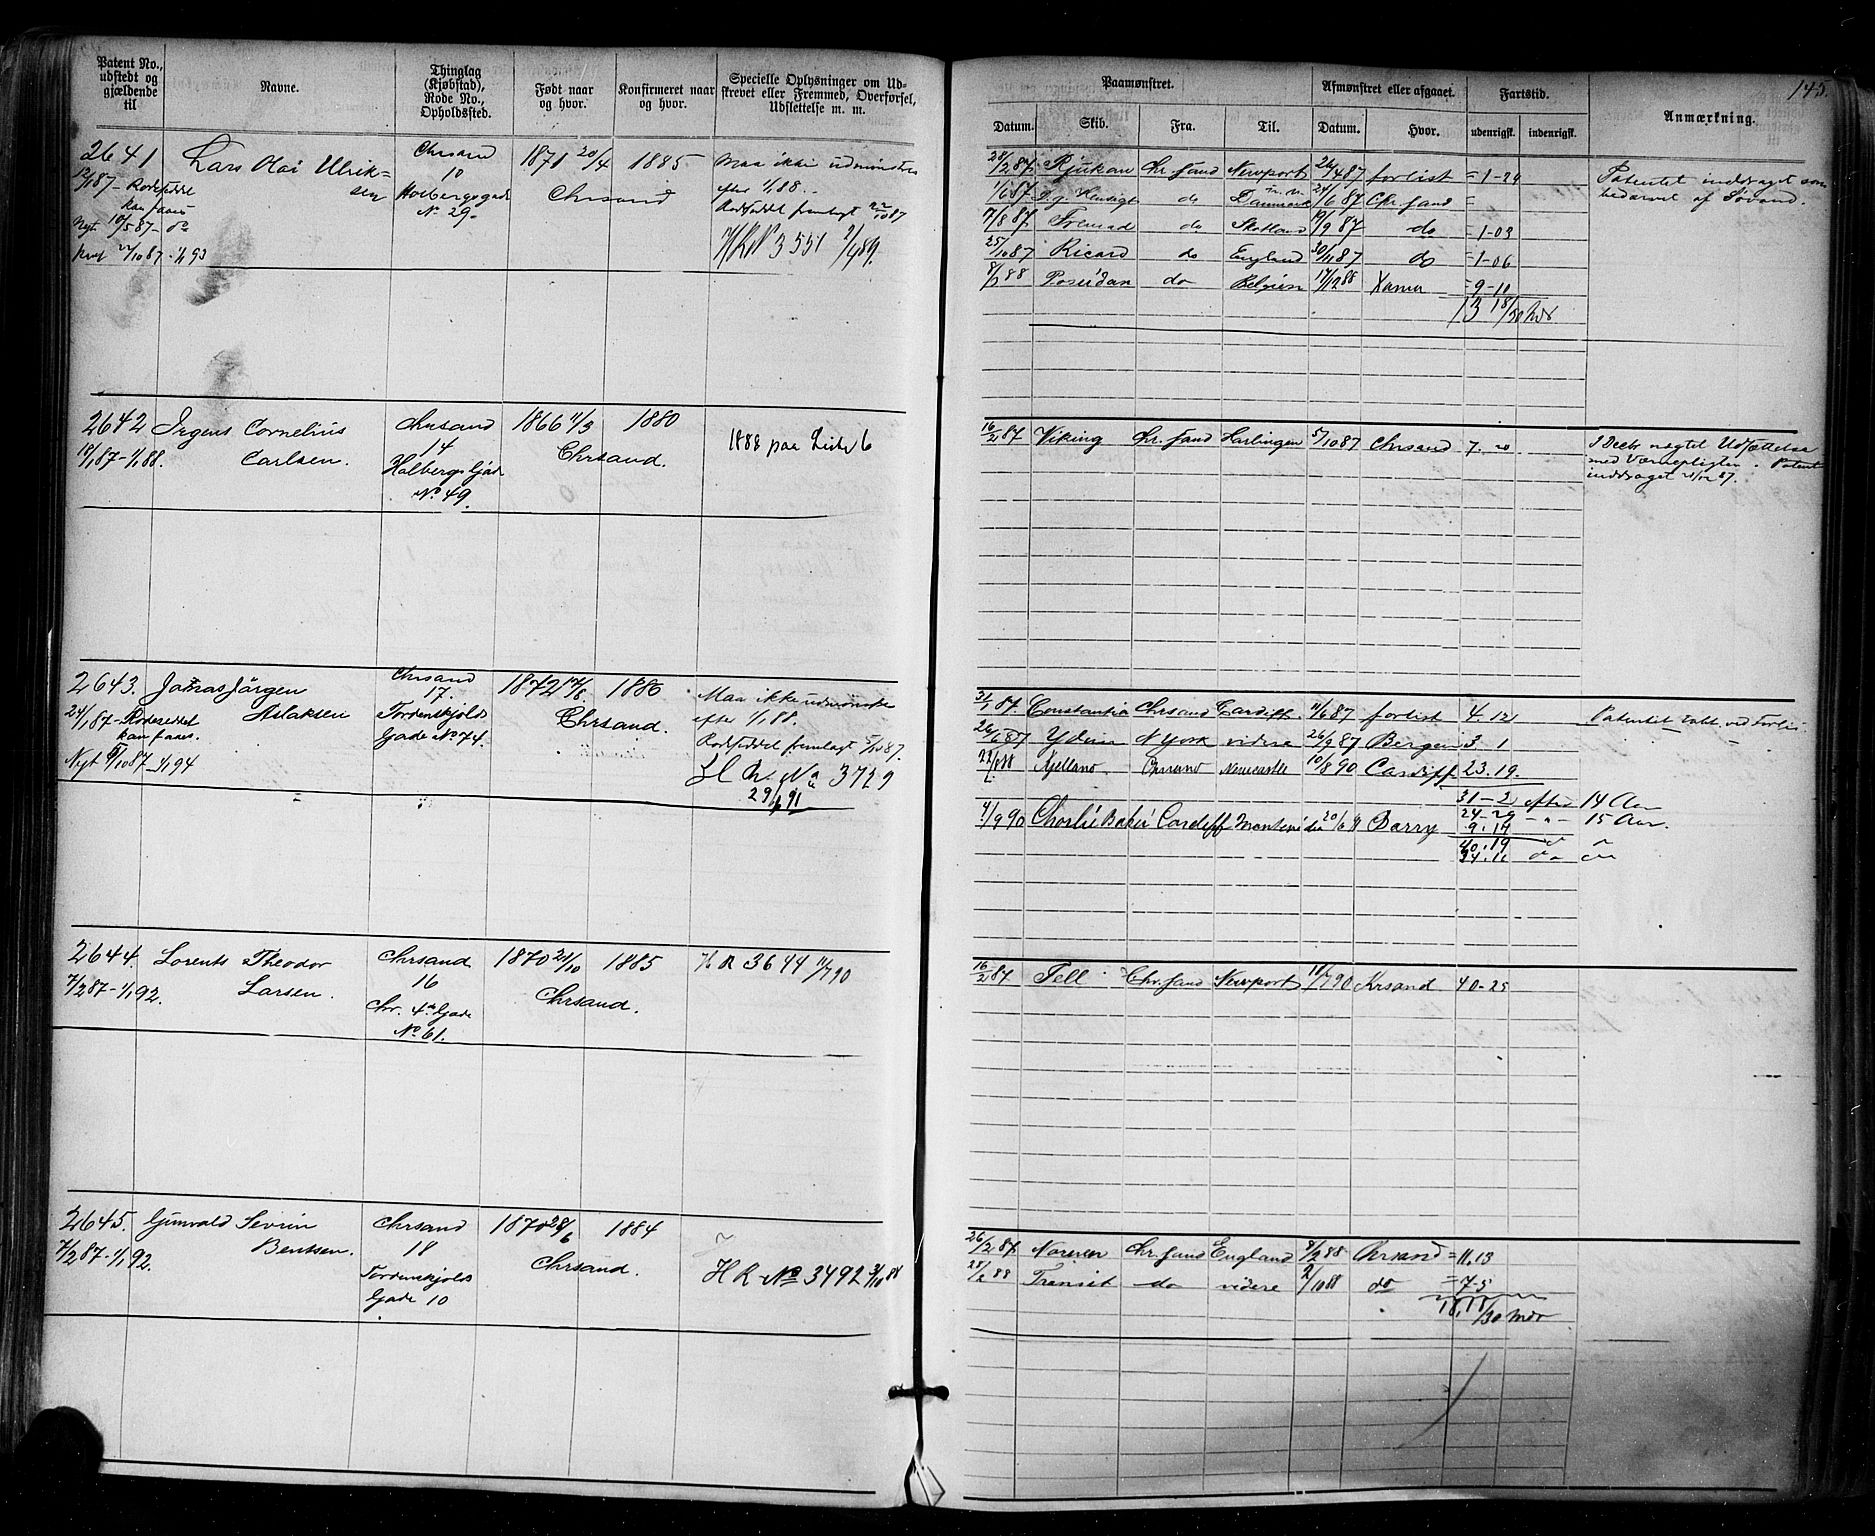 145.
Patent No., udstedt og gjældende til
Navne.
Thinglag (Kjøbstad), Rode No., Opholdssted.
Født naar og hvor.
Konfirmeret naar og hvor.
Specielle Oplysninger om Udskrevet eller Fremmed, Overførsel, Udslettelse m. m.
Paamønstret.
Afmønstret eller afgaaet.
Fartstid.
Anmærkning.
Datum. Skib. Fra. Til. Datum. Hvor. udenrigsk. indenrigsk.
2641 Lars Olai Ulriksen Chrsand 1871 20/4 1885 Maa ikke udmønstres
10 Chrsand efter 1/1 88.
Holbergsgade
No 29.
Kan faaes
Nyt 10/5 87
H R No 3551
28/2 87 Rjukan Chr.sand Newport 26/4 87 forlist = 1-29
1/6 87 Danmark 24/6 87 Chr.sand =
7/8 87 do Skotland 19/9 87 do = 1-03
25/10 87 Ricard do England 30/11 87 do = 1-06
Poseidon do Belgien 17/12 88 = 9-10
13 18/30 Mdr
Patentet inddraget som
bedærvet af Søvand.
2642 Jrgens Cornelius Chrsand 1866 11/3 1880 1888 paa Liste 6
19/1 87-1/1 88. Carlsen. 14 Chrsand.
Holbergs Gade
No 49.
16/2 87 Viking Chr.sand Harlingen 5/10 87 Chrsand 7. 20
I Decbr nægtet Udsættelse
med Værnepligten. Patent
inddraget 21/12 87.
2643. Jonas Jörgen Chrsand 1872 17/8 1886 Maa ikke udmønstre
24/1 87-Rodeseddel Aslaksen 17. Chrsand. efter 1/1 88.
kan faaes. Tordenskjolds
Gade No 74.
Nyt 8/10 87-1/1 94
H R. No 3729
29/6 91
31/1 87. Constantia Chrsand Cardiff 11/6 87 forlist 4. 12
26/6 87 Ydun N York videre 26/9 87 Bergen 3. 1
Kjelland Newcastle 10/8 90 Cardiff 23. 19.
31-2 efter 14 Aar
4/9 90 Charlie Baker Cardiff 20/6 91 Barry 24-29 -"- 15 Aar.
9. 14
40. 19
Patentet tabt ved Forlis
2644. Lorents Theodor Chrsand 1870 21/10 1885 H R 3644 11/7 90
7/2 87-1/1 92. Larsen. 16 Chrsand.
Chr. 4de Gade
No 61.
16/2 87 Tell Chr.sand Newport 11/7 90 Krsand 40-25
2645. Gunvald Sevrin Chrsand 1870 28/6 1884
7/2 87-1/1 92. Bentsen. 18 Chrsand.
Tordenskjolds
Gade 10
H R No 3492 3/10 88
26/2 87 Norman Chr.sand England 8/2 88 Chrsand = 11.13
Transit do videre 2/10 88 do = 7-5
18,18/30 Mdr